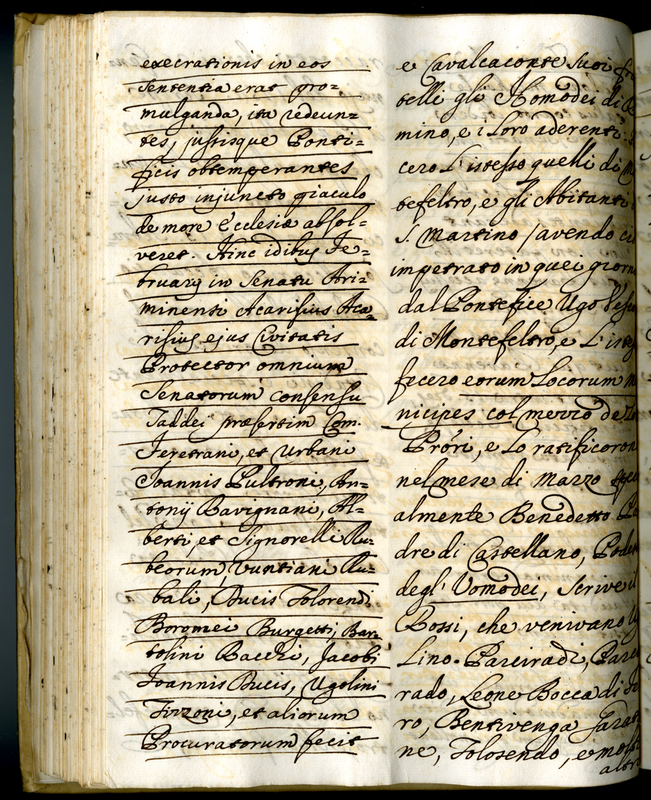 execrationis in eos
sententia erat pro=
mulganda, ita redeun=
tes, jussisque Ponti=
ficis obtemperantes
justo injuncto piaculo
de more Ecclesiæ absol=
veret. Hinc idibus Fe=
bruarij in Senatu Ari=
minensi Acarisius Aca=
risius ejus Civitatis
Protector omnium
Senatorum consensu
Taddei præsertim Com.
Feretrani, et Urbani
Joannis Pultroni, An=
tonij Bavignani, Al=
berti, et Signorelli Ru=
beorum, Vuntiani Ru=
bali, Ducis Tolorendi
Boromei Burgetti, Bar=
tolini Bacchi, Jacobi
Joannis Bucis, Ugolini
Fizzoni, et aliorum
Procuratorum fecit
e Cavalcaconte suoi
telli gli Homodei di
mino, e i loro aderenti.
cero l'istesso quelli di
tefeltro, e gli Abitanti
S. Martino /avendo
impetrato in quei
dal Pontefice Ugo
di Montefeltro, e
fecero eorum Locorum
nicipes col mezzo de
Prôri, e lo ratificoron
nel mese di Marzo
almente Benedetto
dre di Castellano,
degl' Uomodei, scrive il
Bossi, che venivano
Lino Pareiradi,
rado, Leone Bocca di
ro, Bentivenga
ne, Tolosendo, e